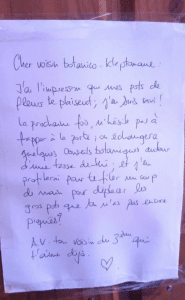 Cher voisin botanico-kleptomane.
J'ai l'impression que mes pots de
fleurs te plaisent ; j'en suis ravi !
La prochaine fois, n'hésite pas à
frapper à la porte ; on échangera
quelques conseils botaniques autour
d'une tasse de thé ; et j'en
profiterai pour te filer un coup
de main pour déplacer les
gros pots que tu n'as pas encore
piqués ?
A.V. ton voisin du 3ème qui
t'aime déjà.